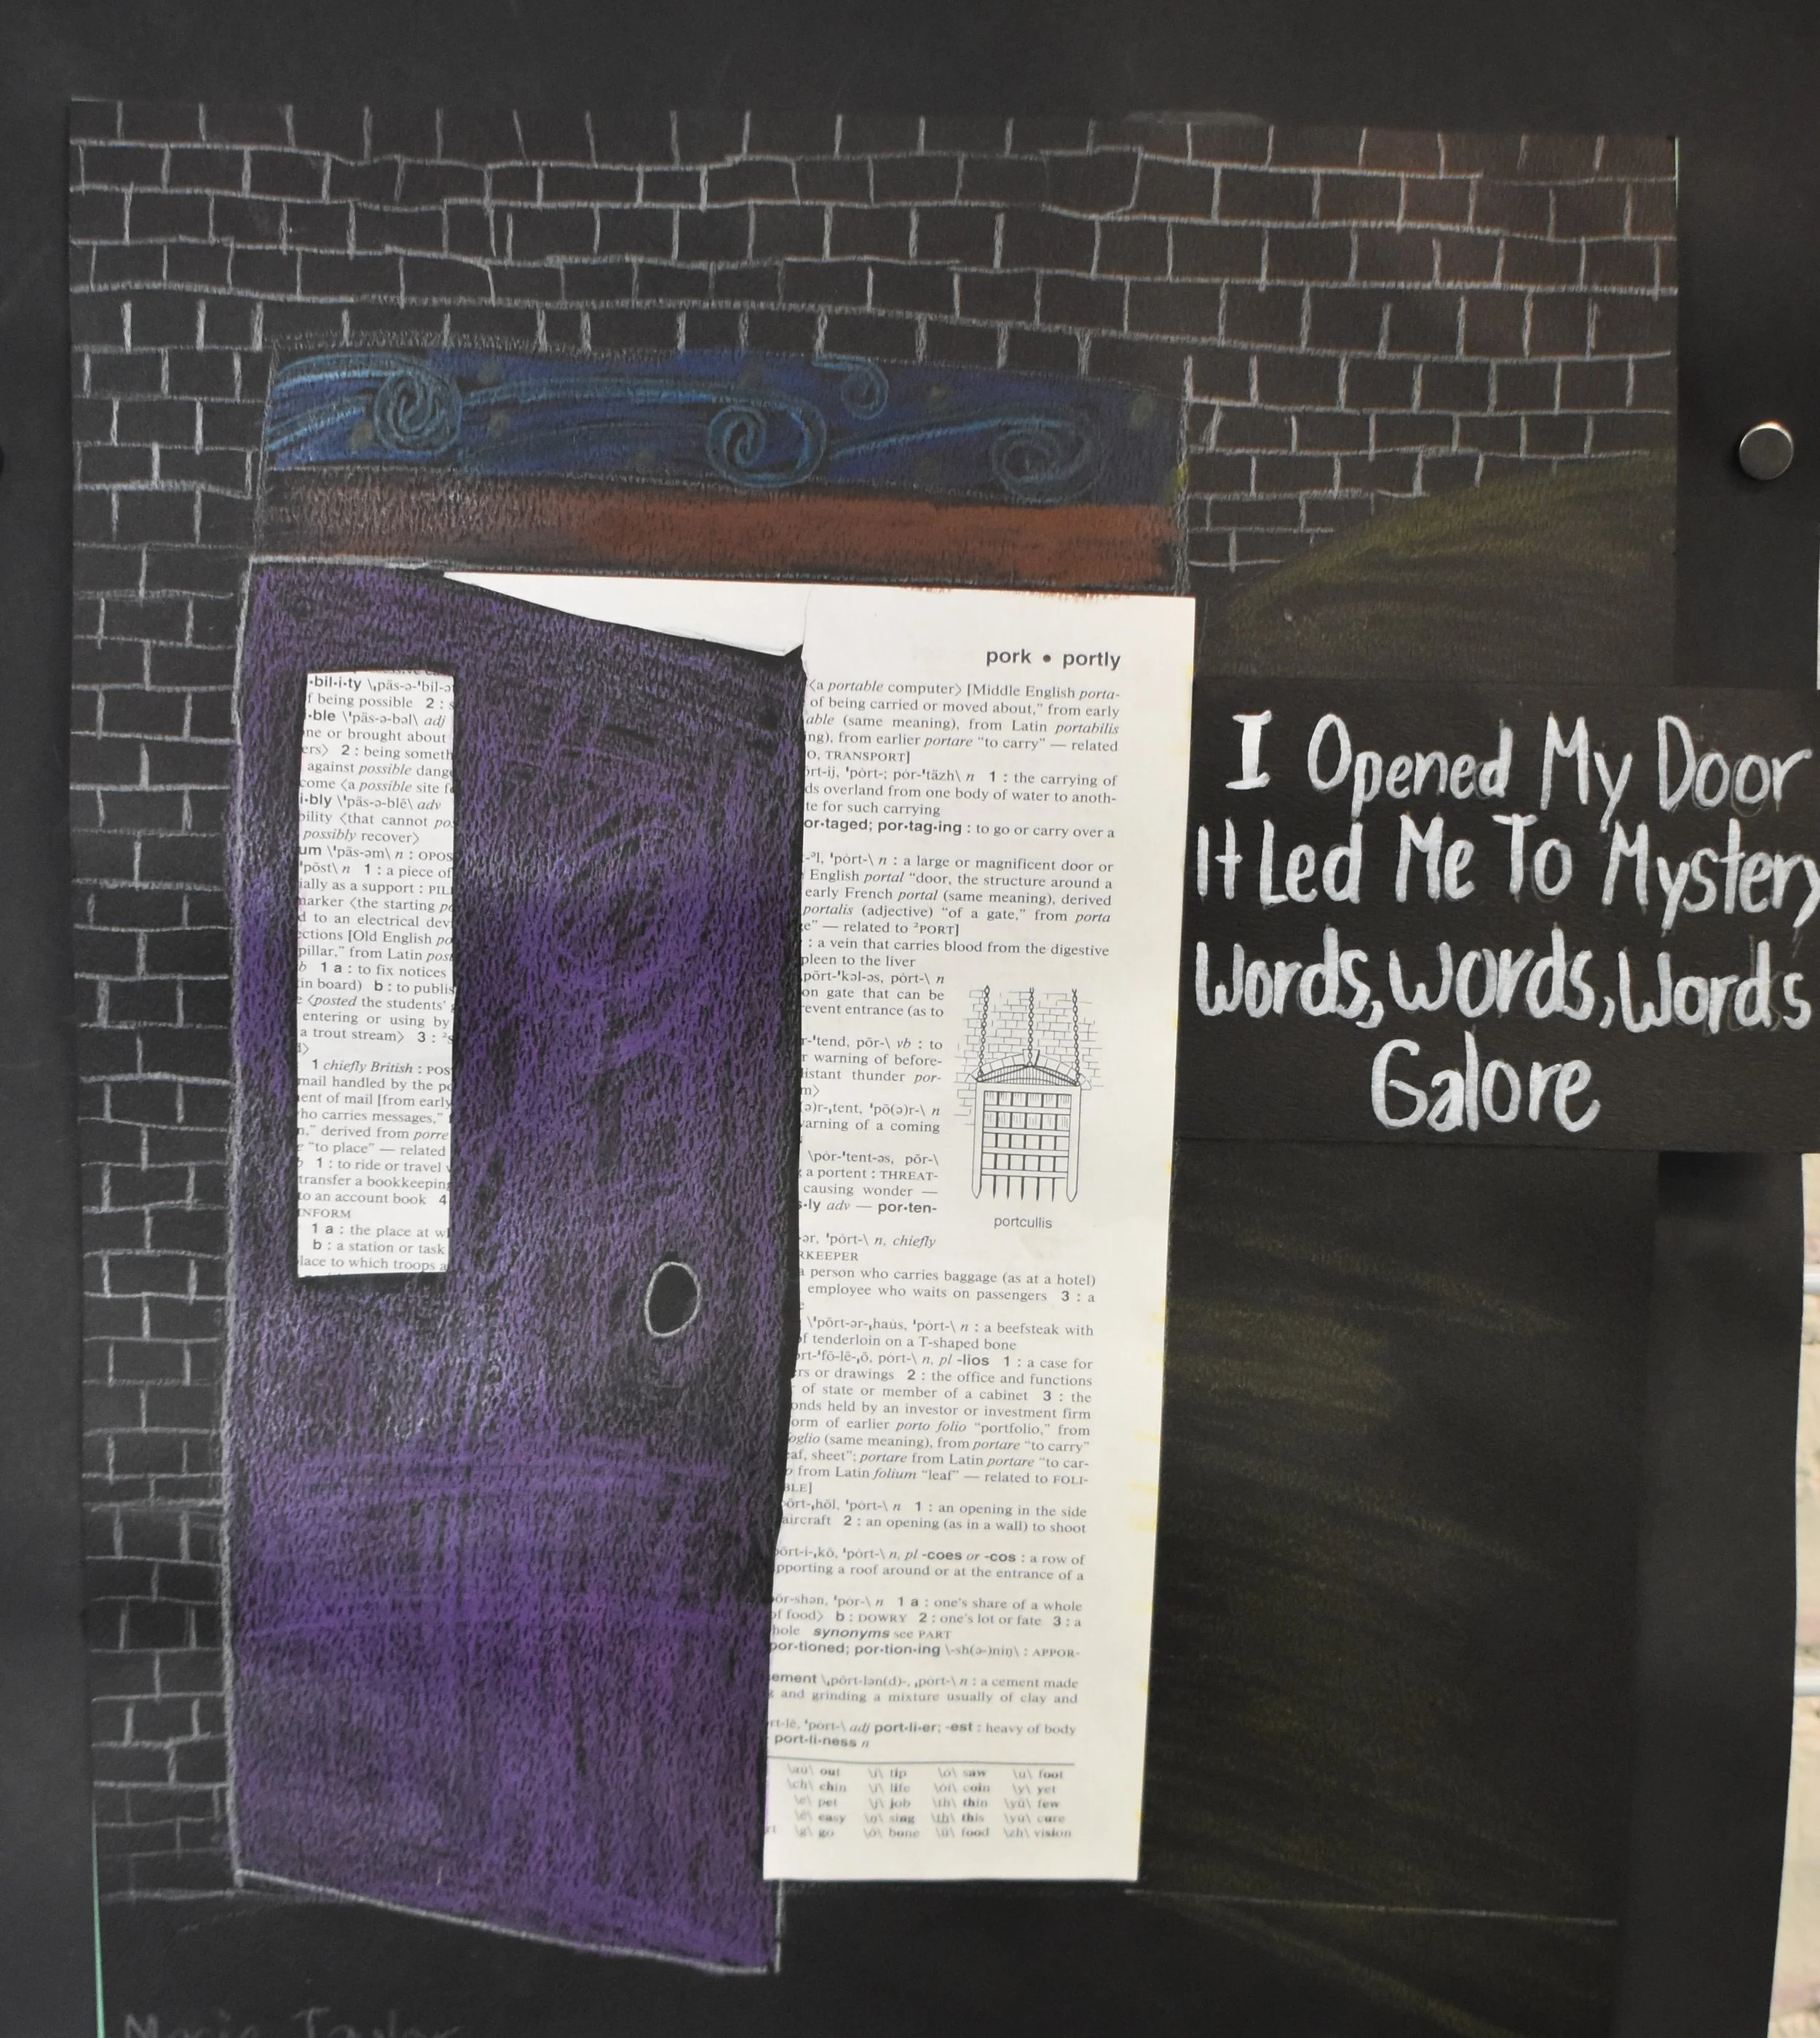 pork • portly
·bil·i·ty \ˌpäs-ə-ˈbil-ə
f being possible 2 : s
·ble \ˈpäs-ə-bəl\ adj
ne or brought about
ers⟩ 2 : being someth
against possible dang
come ⟨a possible site f
i·bly \ˈpäs-ə-blē\ adv
bility ⟨that cannot pos
possibly recover⟩
um \ˈpäs-əm\ n : OPOS
ˈpōst\ n 1 : a piece of
ially as a support : PIL
marker ⟨the starting po
d to an electrical dev
ections [Old English po
pillar," from Latin post
b 1 a : to fix notices
in board) b : to publis
e ⟨posted the students'
entering or using by
a trout stream⟩ 3 : ²s
1 chiefly British : POS
mail handled by the po
ent of mail [from early
ho carries messages,"
n," derived from porre
e "to place" — related
1 : to ride or travel
transfer a bookkeeping
to an account book 4
INFORM
1 a : the place at w
b : a station or task
lace to which troops a
⟨a portable computer⟩ [Middle English porta-
of being carried or moved about," from early
able (same meaning), from Latin portabilis
ing), from earlier portare "to carry" — related
O, TRANSPORT]
ort-ij, ˈpȯrt-; pȯr-ˈtäzh\ n 1 : the carrying of
ds overland from one body of water to anoth-
te for such carrying
or·taged; por·tag·ing : to go or carry over a
-ᵊl, ˈpȯrt-\ n : a large or magnificent door or
English portal "door, the structure around a
early French portal (same meaning), derived
portalis (adjective) "of a gate," from porta
e" — related to ²PORT]
: a vein that carries blood from the digestive
pleen to the liver
pōrt-ˈkəl-əs, pȯrt-\ n
on gate that can be
revent entrance (as to
r-ˈtend, pōr-\ vb : to
r warning of before-
distant thunder por-
m⟩
(ə)r-ˌtent, ˈpō(ə)r-\ n
warning of a coming
\pȯr-ˈtent-əs, pōr-\
a portent : THREAT-
causing wonder —
s·ly adv — por·ten-
portcullis
-ər, ˈpȯrt-\ n, chiefly
RKEEPER
a person who carries baggage (as at a hotel)
employee who waits on passengers 3 : a
\ˈpōrt-ər-ˌhau̇s, ˈpȯrt-\ n : a beefsteak with
of tenderloin on a T-shaped bone
ort-ˈfō-lē-ˌō, pȯrt-\ n, pl -lios 1 : a case for
ers or drawings 2 : the office and functions
of state or member of a cabinet 3 : the
onds held by an investor or investment firm
orm of earlier porto folio "portfolio," from
oglio (same meaning), from portare "to carry"
eaf, sheet"; portare from Latin portare "to car-
from Latin folium "leaf" — related to FOLI-
BLE]
pōrt-ˌhōl, ˈpȯrt-\ n 1 : an opening in the side
aircraft 2 : an opening (as in a wall) to shoot
pōrt-i-ˌkō, ˈpȯrt-\ n, pl -coes or -cos : a row of
pporting a roof around or at the entrance of a
ōr-shən, ˈpȯr-\ n 1 a : one's share of a whole
of food⟩ b : DOWRY 2 : one's lot or fate 3 : a
hole synonyms see PART
por·tioned; por·tion·ing \-sh(ə-)niŋ\ : APPOR-
ement \ˌpōrt-lən(d)-, ˌpȯrt-\ n : a cement made
and grinding a mixture usually of clay and
rt-lē, ˈpȯrt-\ adj port·li·er; -est : heavy of body
port·li·ness n
\au̇\ out \i\ tip \ȯ\ saw \u̇\ foot
\ch\ chin \ī\ life \ȯi\ coin \y\ yet
\e\ pet \j\ job \th\ thin \yü\ few
\ē\ easy \ŋ\ sing \th\ this \yu̇\ cure
\g\ go \ō\ bone \ü\ food \zh\ vision
I Opened My Door
It Led Me To Mystery
Words, Words, Words
Galore
Taylor